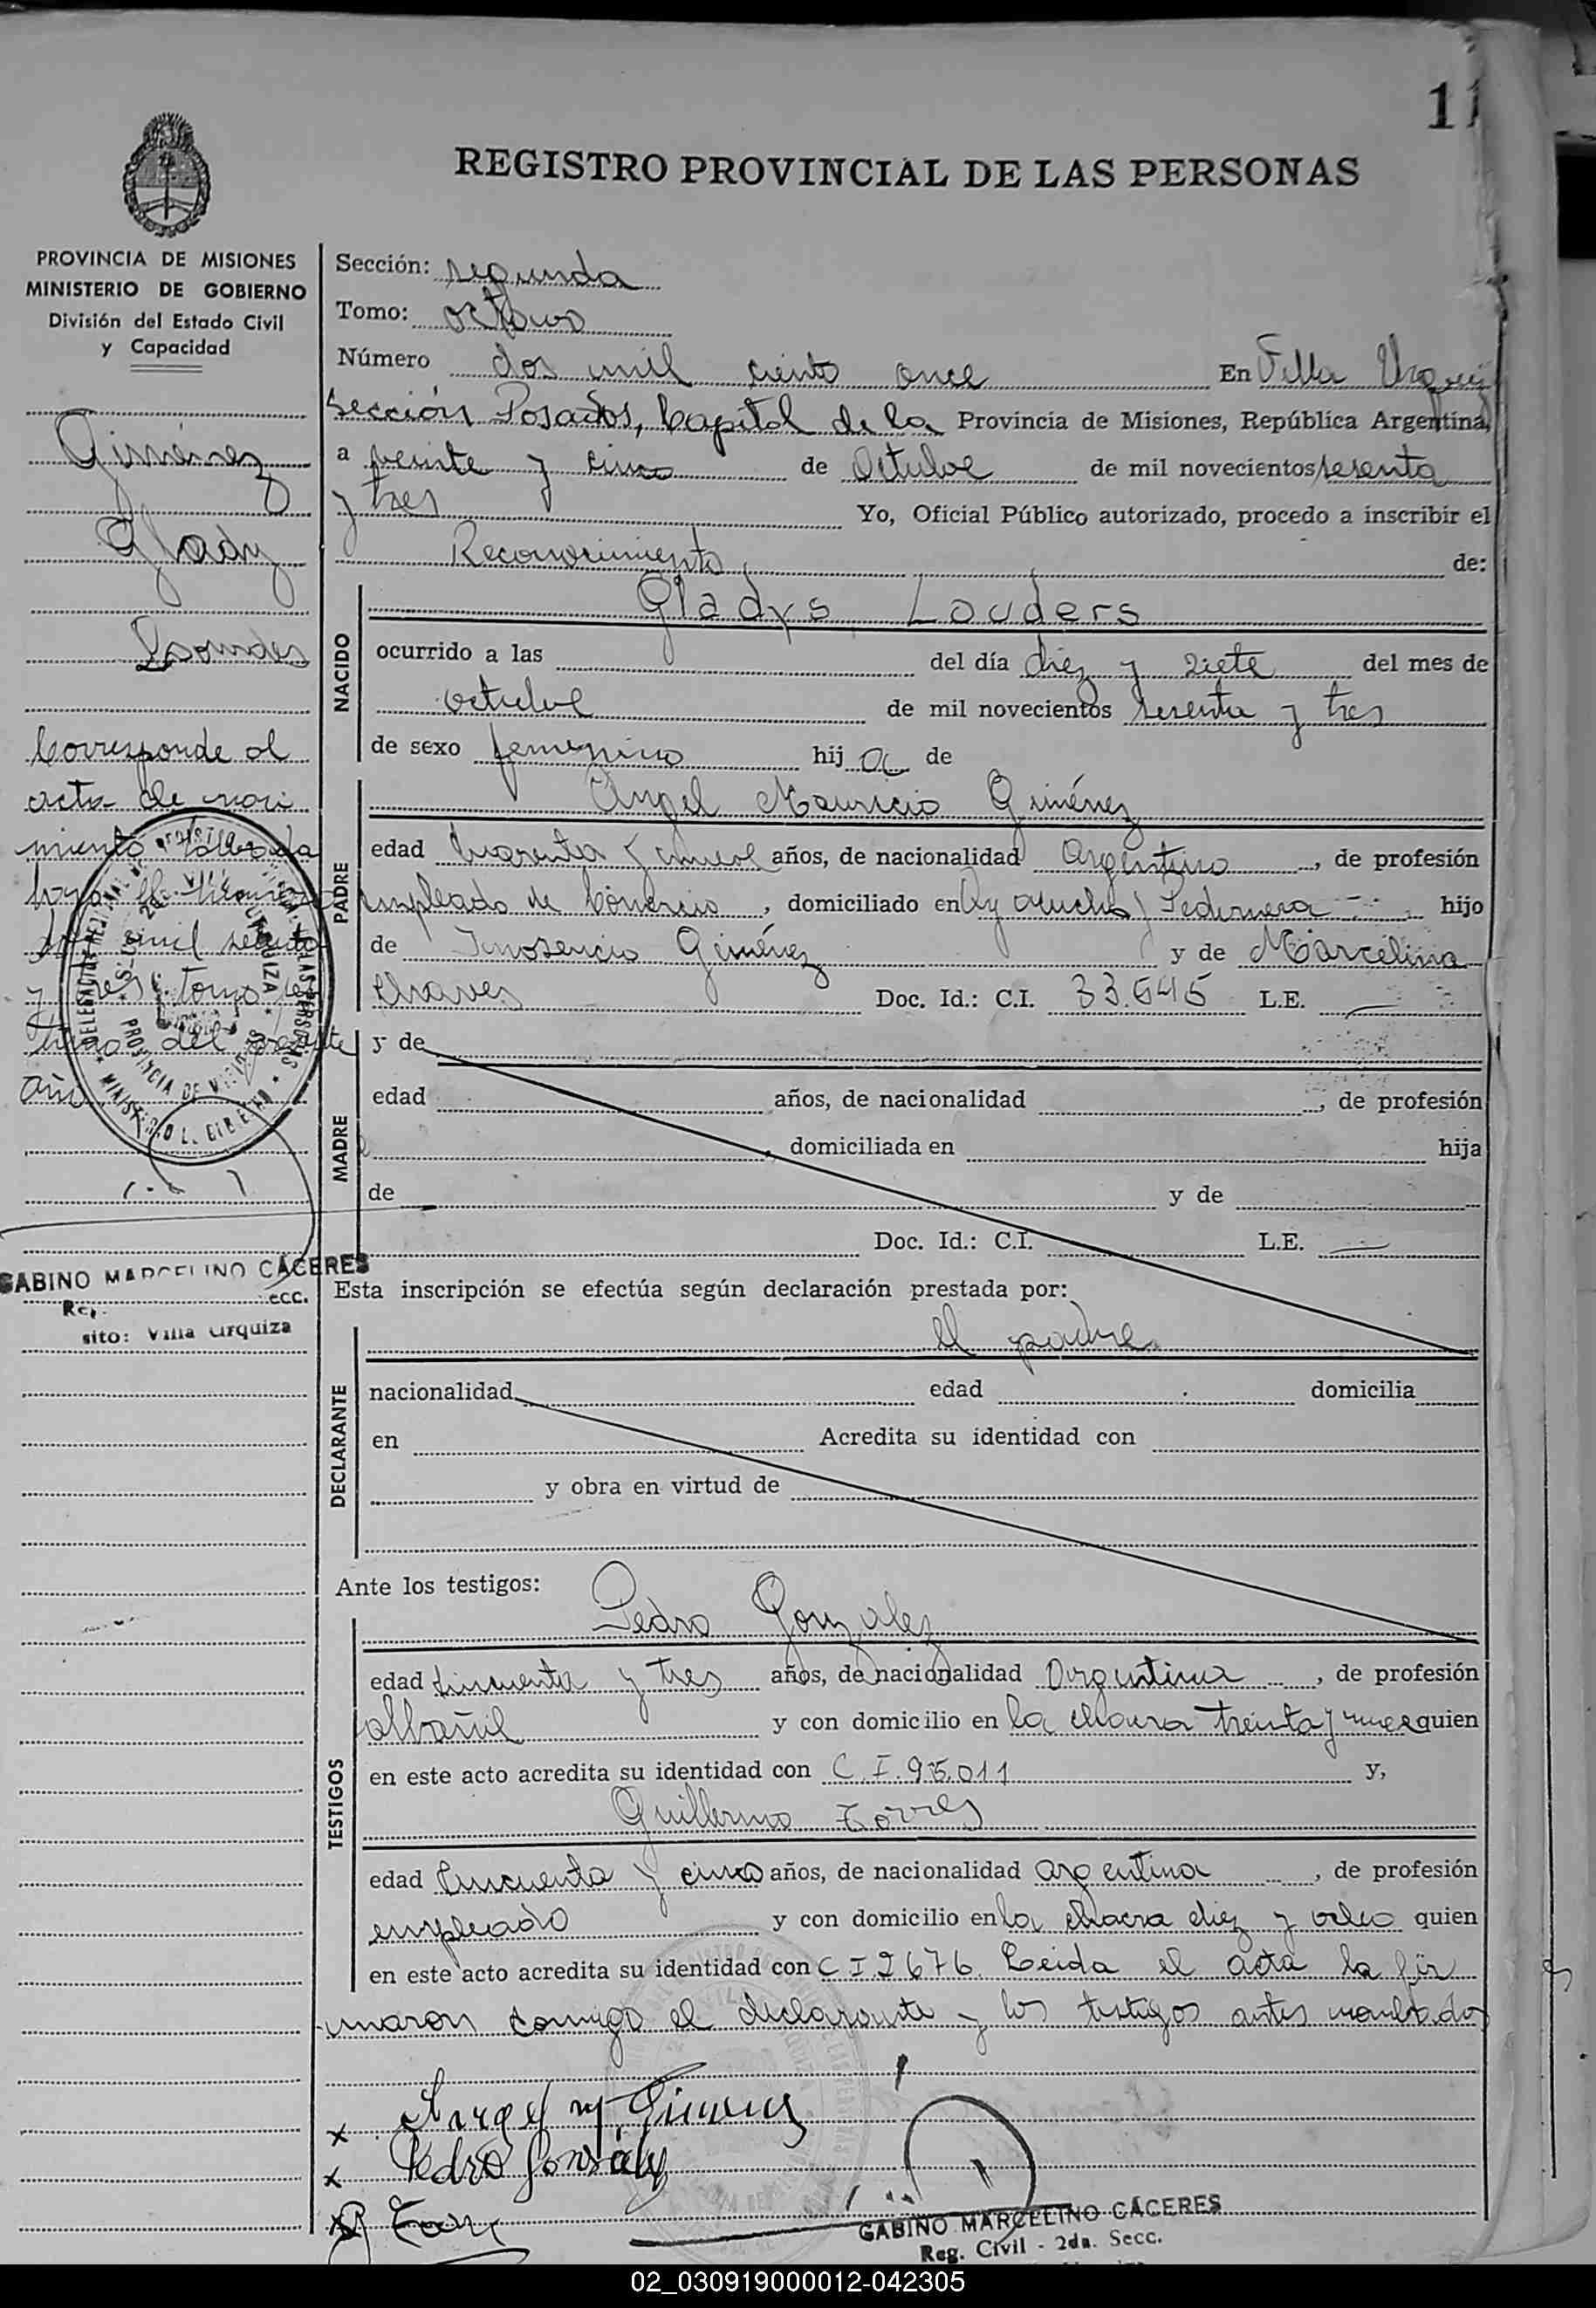 11
REGISTRO PROVINCIAL DE LAS PERSONAS
PROVINCIA DE MISIONES
MINISTERIO DE GOBIERNO
División del Estado Civil
y Capacidad
Giménez
Glady
Lourdes
Corresponde al
acta de naci
miento labrada
bajo el número
mil
y tres tomo
del presente
año
GABINO MARCELINO CÁCERES
sito: Villa Urquiza
Sección: segunda
Tomo: octavo
Número dos mil ciento once En Villa Urquiza
Sección Posadas, Capital de la Provincia de Misiones, República Argentina,
a veinte y cinco de Octubre de mil novecientos sesenta
y tres Yo, Oficial Público autorizado, procedo a inscribir el
Reconocimiento de:
NACIDO
Gladys Louders
ocurrido a las del día diez y siete del mes de
octubre de mil novecientos sesenta y tres
de sexo femenino hija de
PADRE
Angel Mauricio Giménez
edad cuarenta y nueve años, de nacionalidad Argentino, de profesión
empleado de Comercio, domiciliado en Ayacucho y Pedernera hijo
de Inosencio Giménez y de Marcelina
Chaves Doc. Id.: C.I. 33.645 L.E.
MADRE
y de
edad años, de nacionalidad , de profesión
, domiciliada en hija
de y de
Doc. Id.: C.I. L.E.
Esta inscripción se efectúa según declaración prestada por:
el padre
DECLARANTE
nacionalidad edad domicilia
en Acredita su identidad con
y obra en virtud de
Ante los testigos:
Pedro Gonzalez
TESTIGOS
edad cincuenta y tres años, de nacionalidad Argentina, de profesión
albañil y con domicilio en la chacra treinta y nueve quien
en este acto acredita su identidad con C.I. 95.011 y,
Guillermo Torres
edad cincuenta y cinco años, de nacionalidad argentina, de profesión
empleado y con domicilio en la chacra diez y ocho quien
en este acto acredita su identidad con C I 2676. Leida el acta la fir
maron conmigo el declarante y los testigos antes nombrados
x Angel M Gimenez
x Pedro González
x G Torres
GABINO MARCELINO CÁCERES
Reg. Civil - 2da. Secc.
02_030919000012-042305